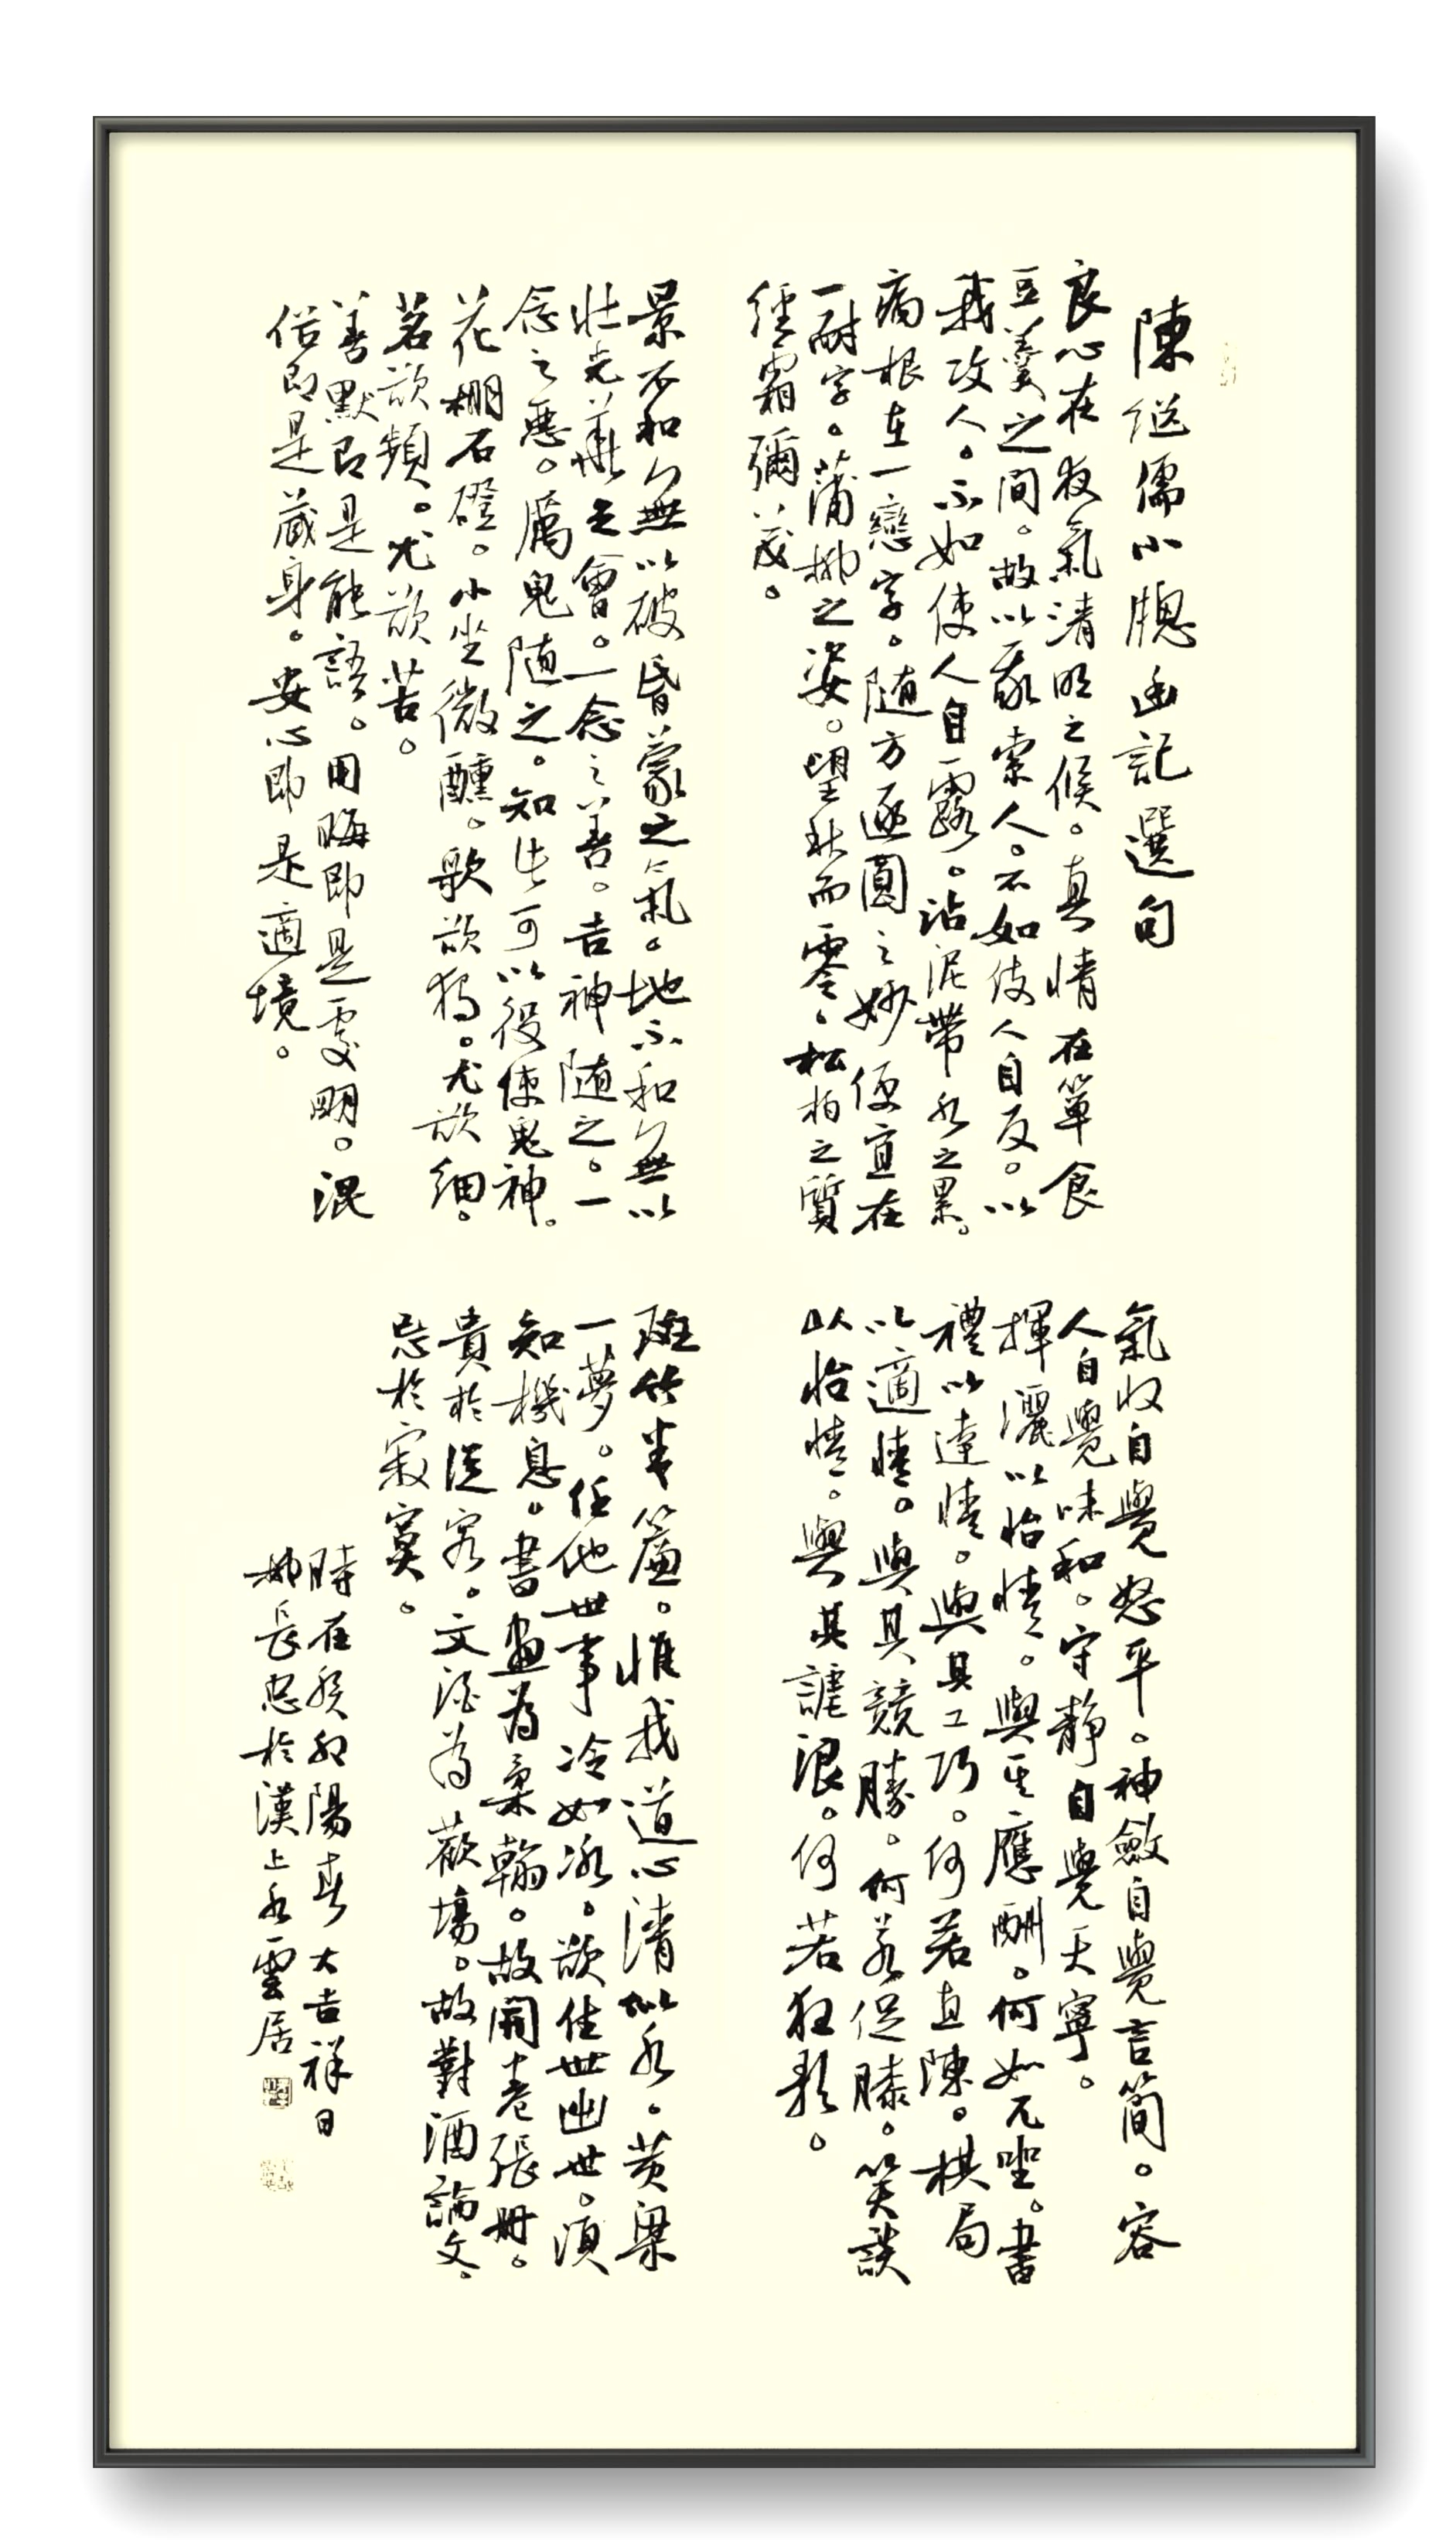 陳继儒小牕幽記選句
良心在夜氣清明之候。真情在簞食
豆羹之間。故以我索人。不如使人自反。以
我攻人。不如使人自露。沾泥帶水之累。
病根在一戀字。随方逐圓之妙便宜在
一耐字。蒲柳之姿。望秋而零。松柏之質
經霜彌茂。
景不和無以破昏蒙之氣。地不和無以
壯光華之會。一念之善。吉神随之。一
念之惡。厲鬼随之。知此可以役使鬼神。
花棚石磴。小坐微醺。歌欲獨。尤欲细。
茗欲頻。尤欲苦。
善默即是能語。用晦即是處明。混
俗即是藏身。安心即是適境。
氣收自覺怒平。神斂自覺言簡。容
人自覺味和。守静自覺天寧。
揮灑以怡情。與其應酬。何如兀坐。書
禮以達情。與其工巧。何若直陳。棋局
以適情。與其競勝。何若促膝。笑談
以怡情。與其謔浪。何若狂歌。
斑竹半簾。惟我道心清似水。黄粱
一夢。任他世事冷如冰。欲住世出世。須
知機息。書畫為柔翰。故開卷張冊。
貴於從容。文酒為歡場。故對酒論文。
忌於寂寞。
時在癸卯陽春大吉祥日
姚長忠於漢上水雲居